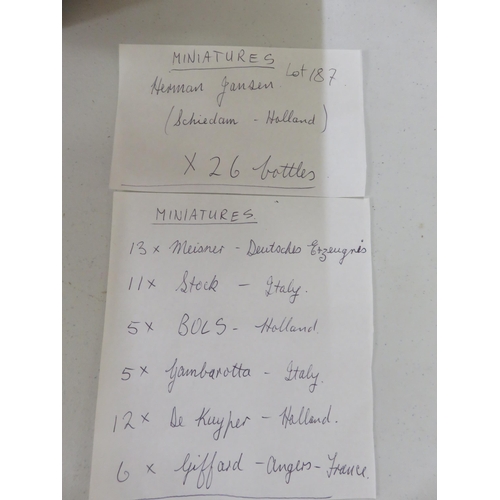 MINIATURES
Lot 187
Herman Jansen
(Schiedam - Holland)
X 26 bottles
MINIATURES
13 x Meisner - Deutsches Erzeugnis
11 x Stock - Italy.
5 x BOLS - Holland
5 x Gambarotta - Italy.
12 x De Kuyper - Holland.
6 x Giffard - Angers - France.